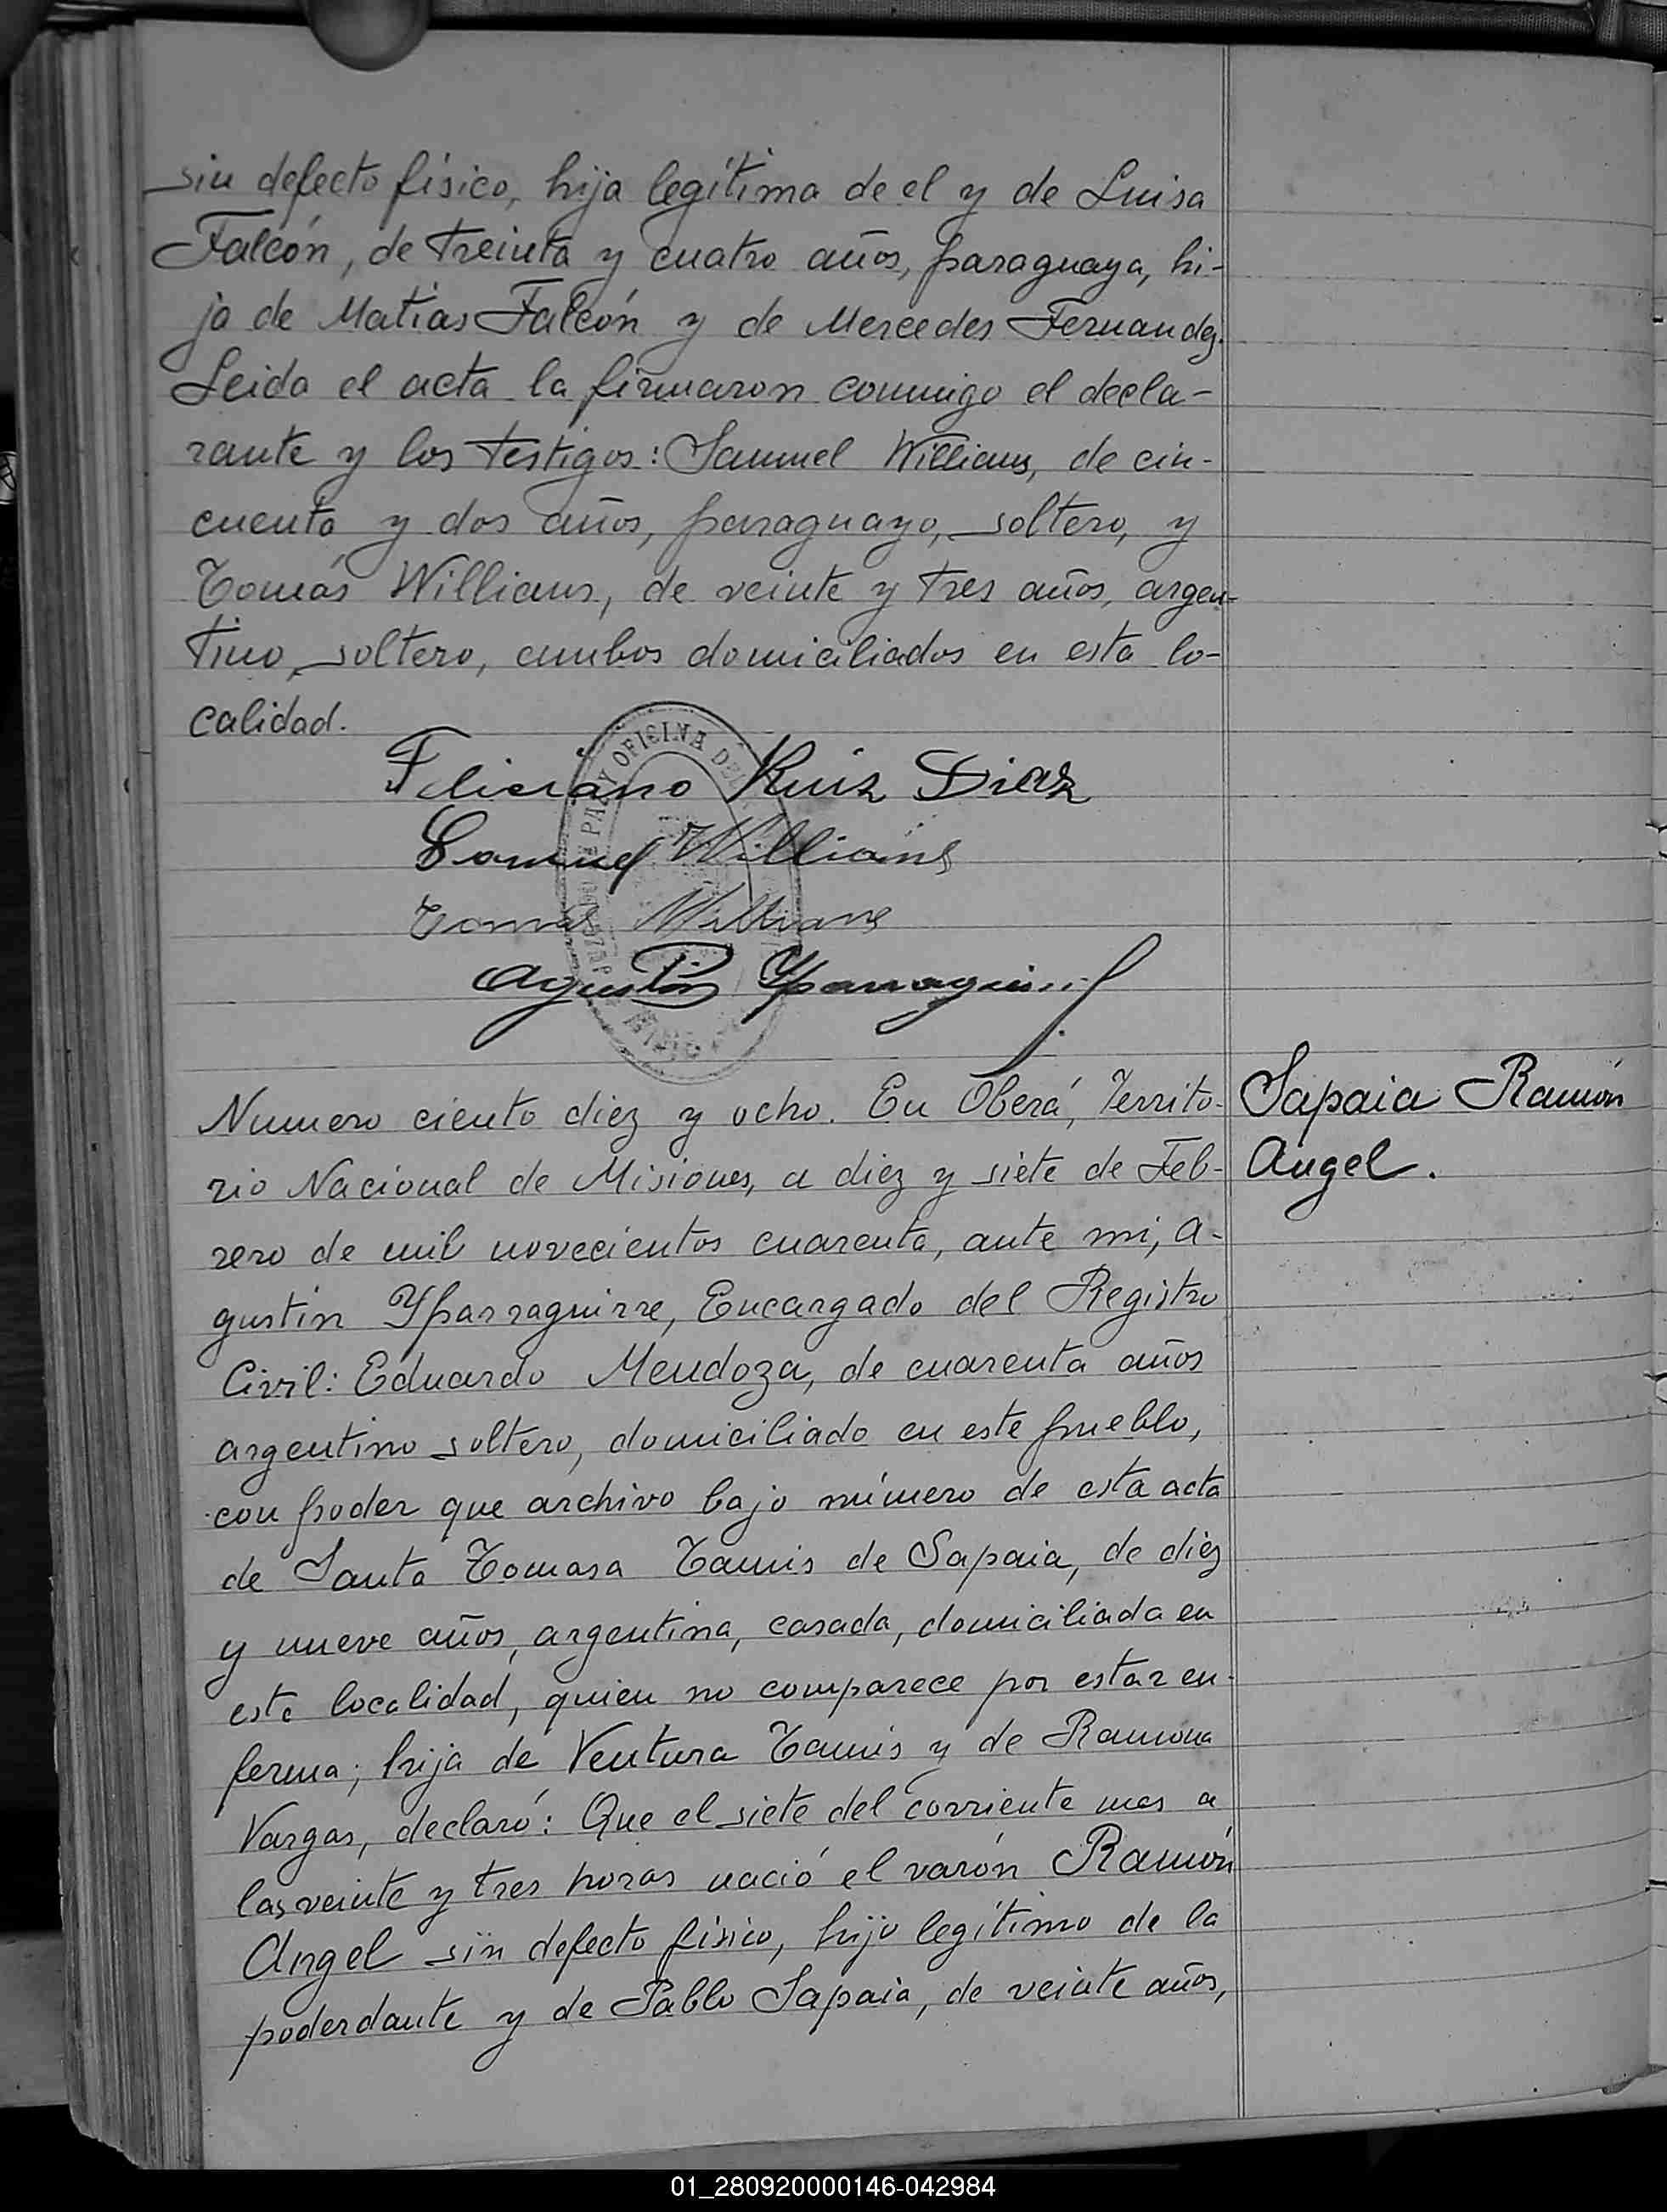 sin defecto físico, hija legítima de el y de Luisa
Falcón, de treinta y cuatro años, paraguaya, hi-
ja de Matías Falcón y de Mercedes Fernandez.
Leida el acta la firmaron conmigo el decla-
rante y los testigos: Samuel Williams, de cin-
cuenta y dos años, paraguayo, soltero, y
Tomás Williams, de veinte y tres años, argen-
tino, soltero, ambos domiciliados en esta lo-
calidad.
OFICINA DEL
Feliciano Ruiz Diaz
Samuel Williams
Tomas Williams
Agustin Yparraguirre
Numero ciento diez y ocho. En Oberá, Territo-
Sapaia Ramón
Angel.
rio Nacional de Misiones, a diez y siete de Feb-
rero de mil novecientos cuarenta, ante mi, A-
gustín Yparraguirre, Encargado del Registro
Civil: Eduardo Mendoza, de cuarenta años
argentino soltero, domiciliado en este pueblo,
con poder que archivo bajo número de esta acta
de Santa Tomasa Tamis de Sapaia, de diez
y nueve años, argentina, casada, domiciliada en
esta localidad, quien no comparece por estar en-
ferma; hija de Ventura Tamis y de Ramona
Vargas, declaró: Que el siete del corriente mes a
las veinte y tres horas nació el varón Ramón
Angel sin defecto físico, hijo legítimo de la
poderdante y de Pablo Sapaia, de veinte años,
01_280920000146-042984